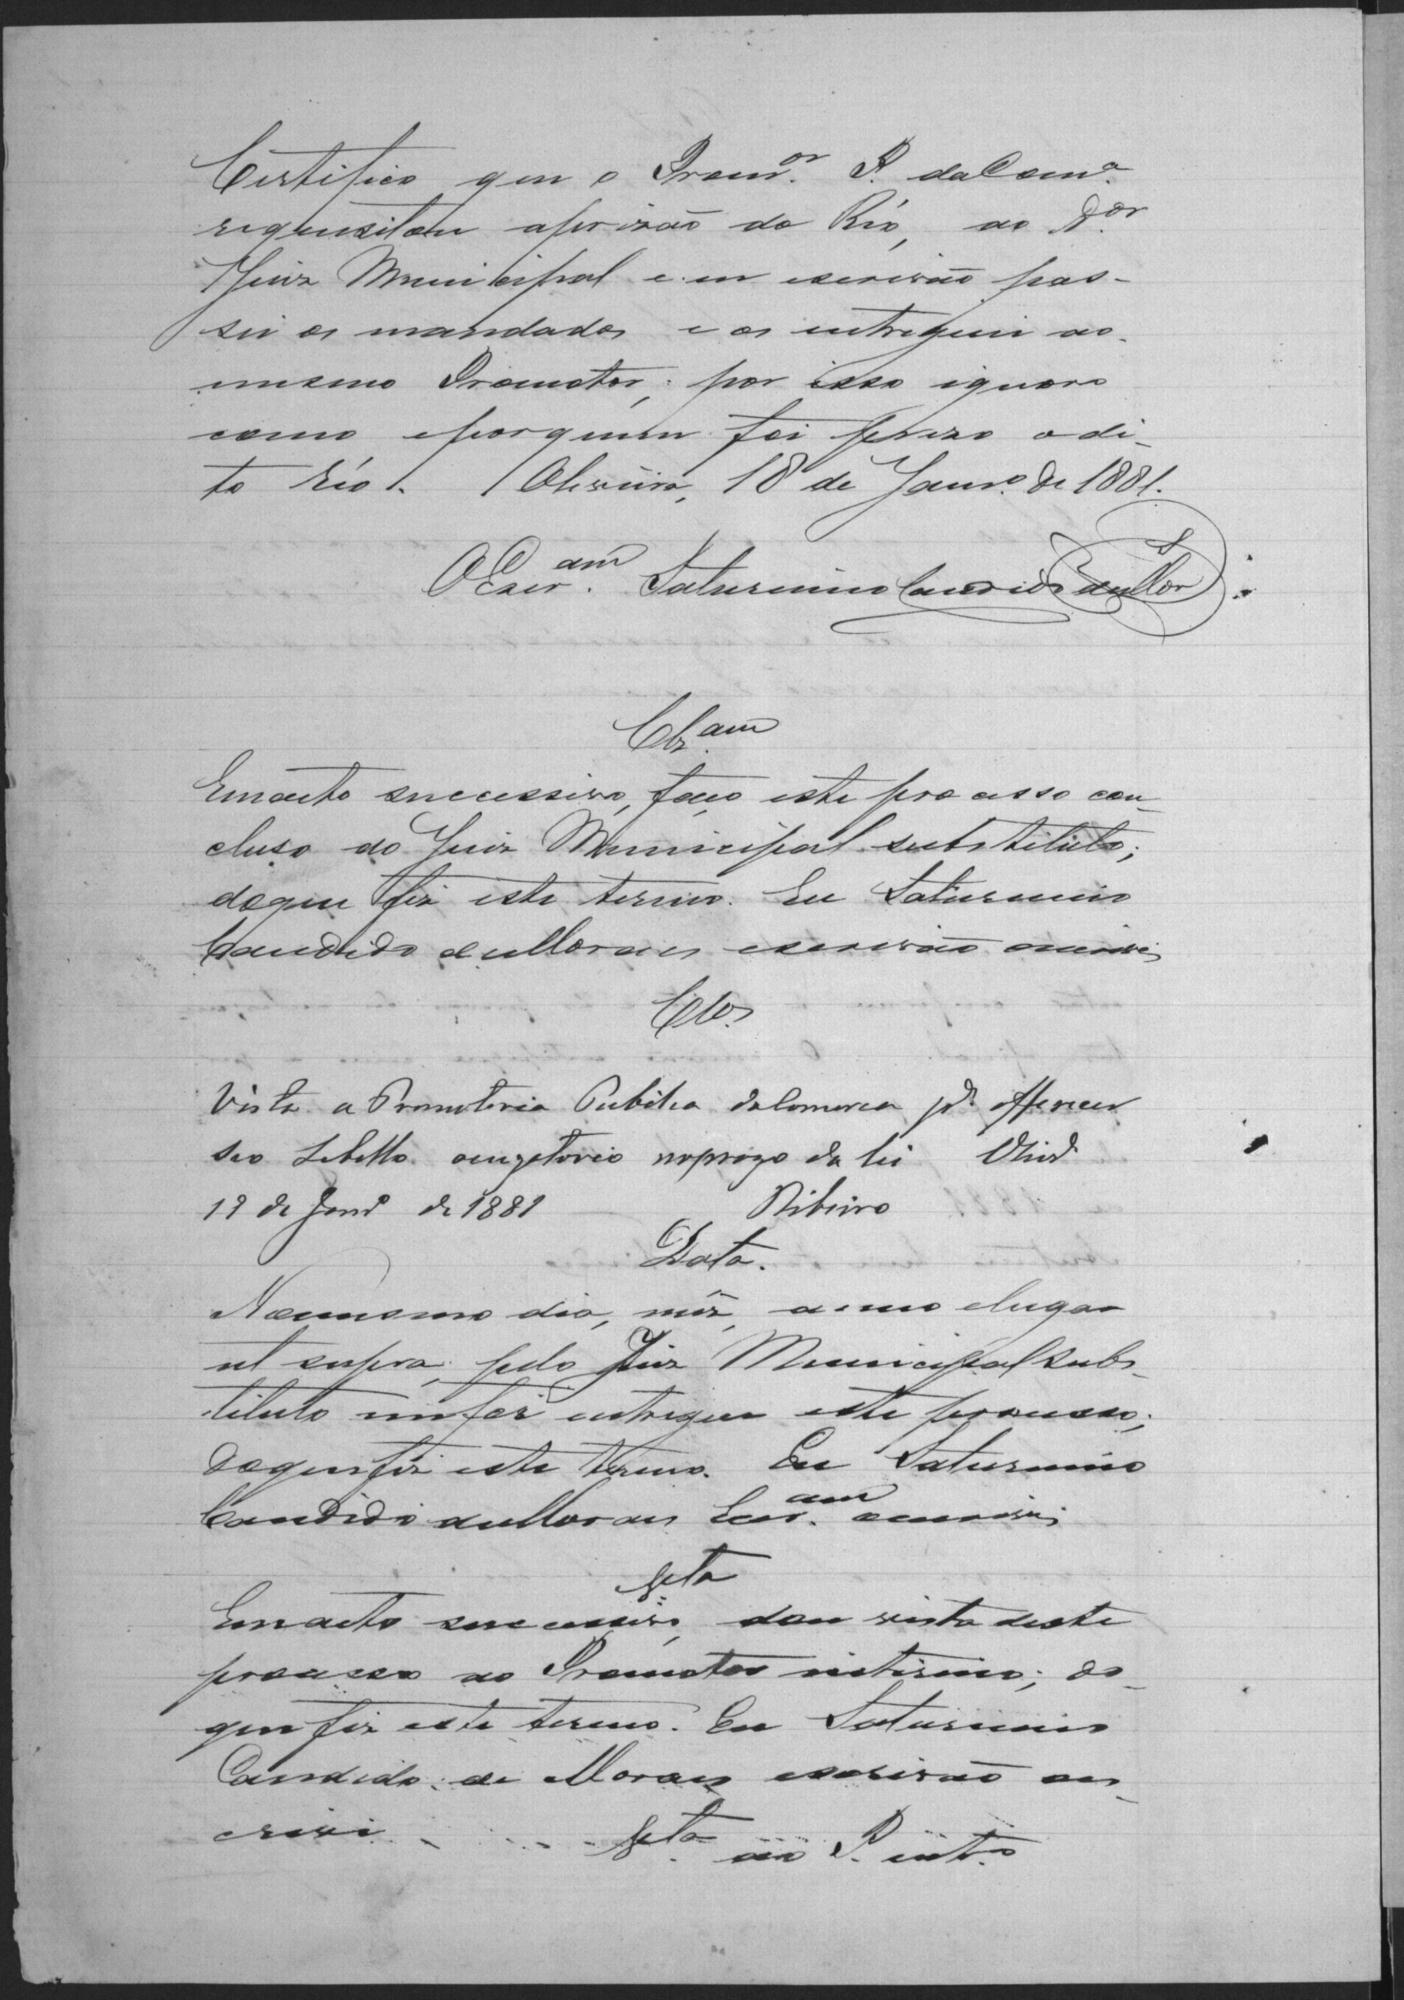 Certifico que o Prom.or P. da Com.a
requisitou a prizão do Rio, ao D.or
Juiz Municipal e eu escrivão pas-
sei os mandados e os entreguei ao
mesmo Promotor; por isso ignoro
como e por quem foi prezo o di-
to Réo. Oliveira, 18 de Janr.o de 1881.
O Escr.am Saturnino Candido de Mor.s
Clz.am
Em acto successivo, faço este processo con-
cluso ao Juiz Municipal substituto;
do que fiz este termo. Eu Saturnino
Candido de Moraes escrivão o escrevi
Clos.
Vista a Promotoria Publica da Comarca p.a offerecer
seo Libello no prazo da lei
de Janr.o de 1881 Ribeiro
Data.
No mesmo dia, mêz, anno e lugar
ut supra, pelo Juiz Municipal subs-
tituto me foi entregue este processo;
do que fiz este termo. Eu Saturnino
Candido de Moraes Escr.am o escrevi
V.ta
Em acto successivo, dou vista deste
processo ao Promotor interino; do
que fiz este termo. Eu Saturnino
Candido de Moraes escrivão o es-
crevi
V.ta ao P. int.o